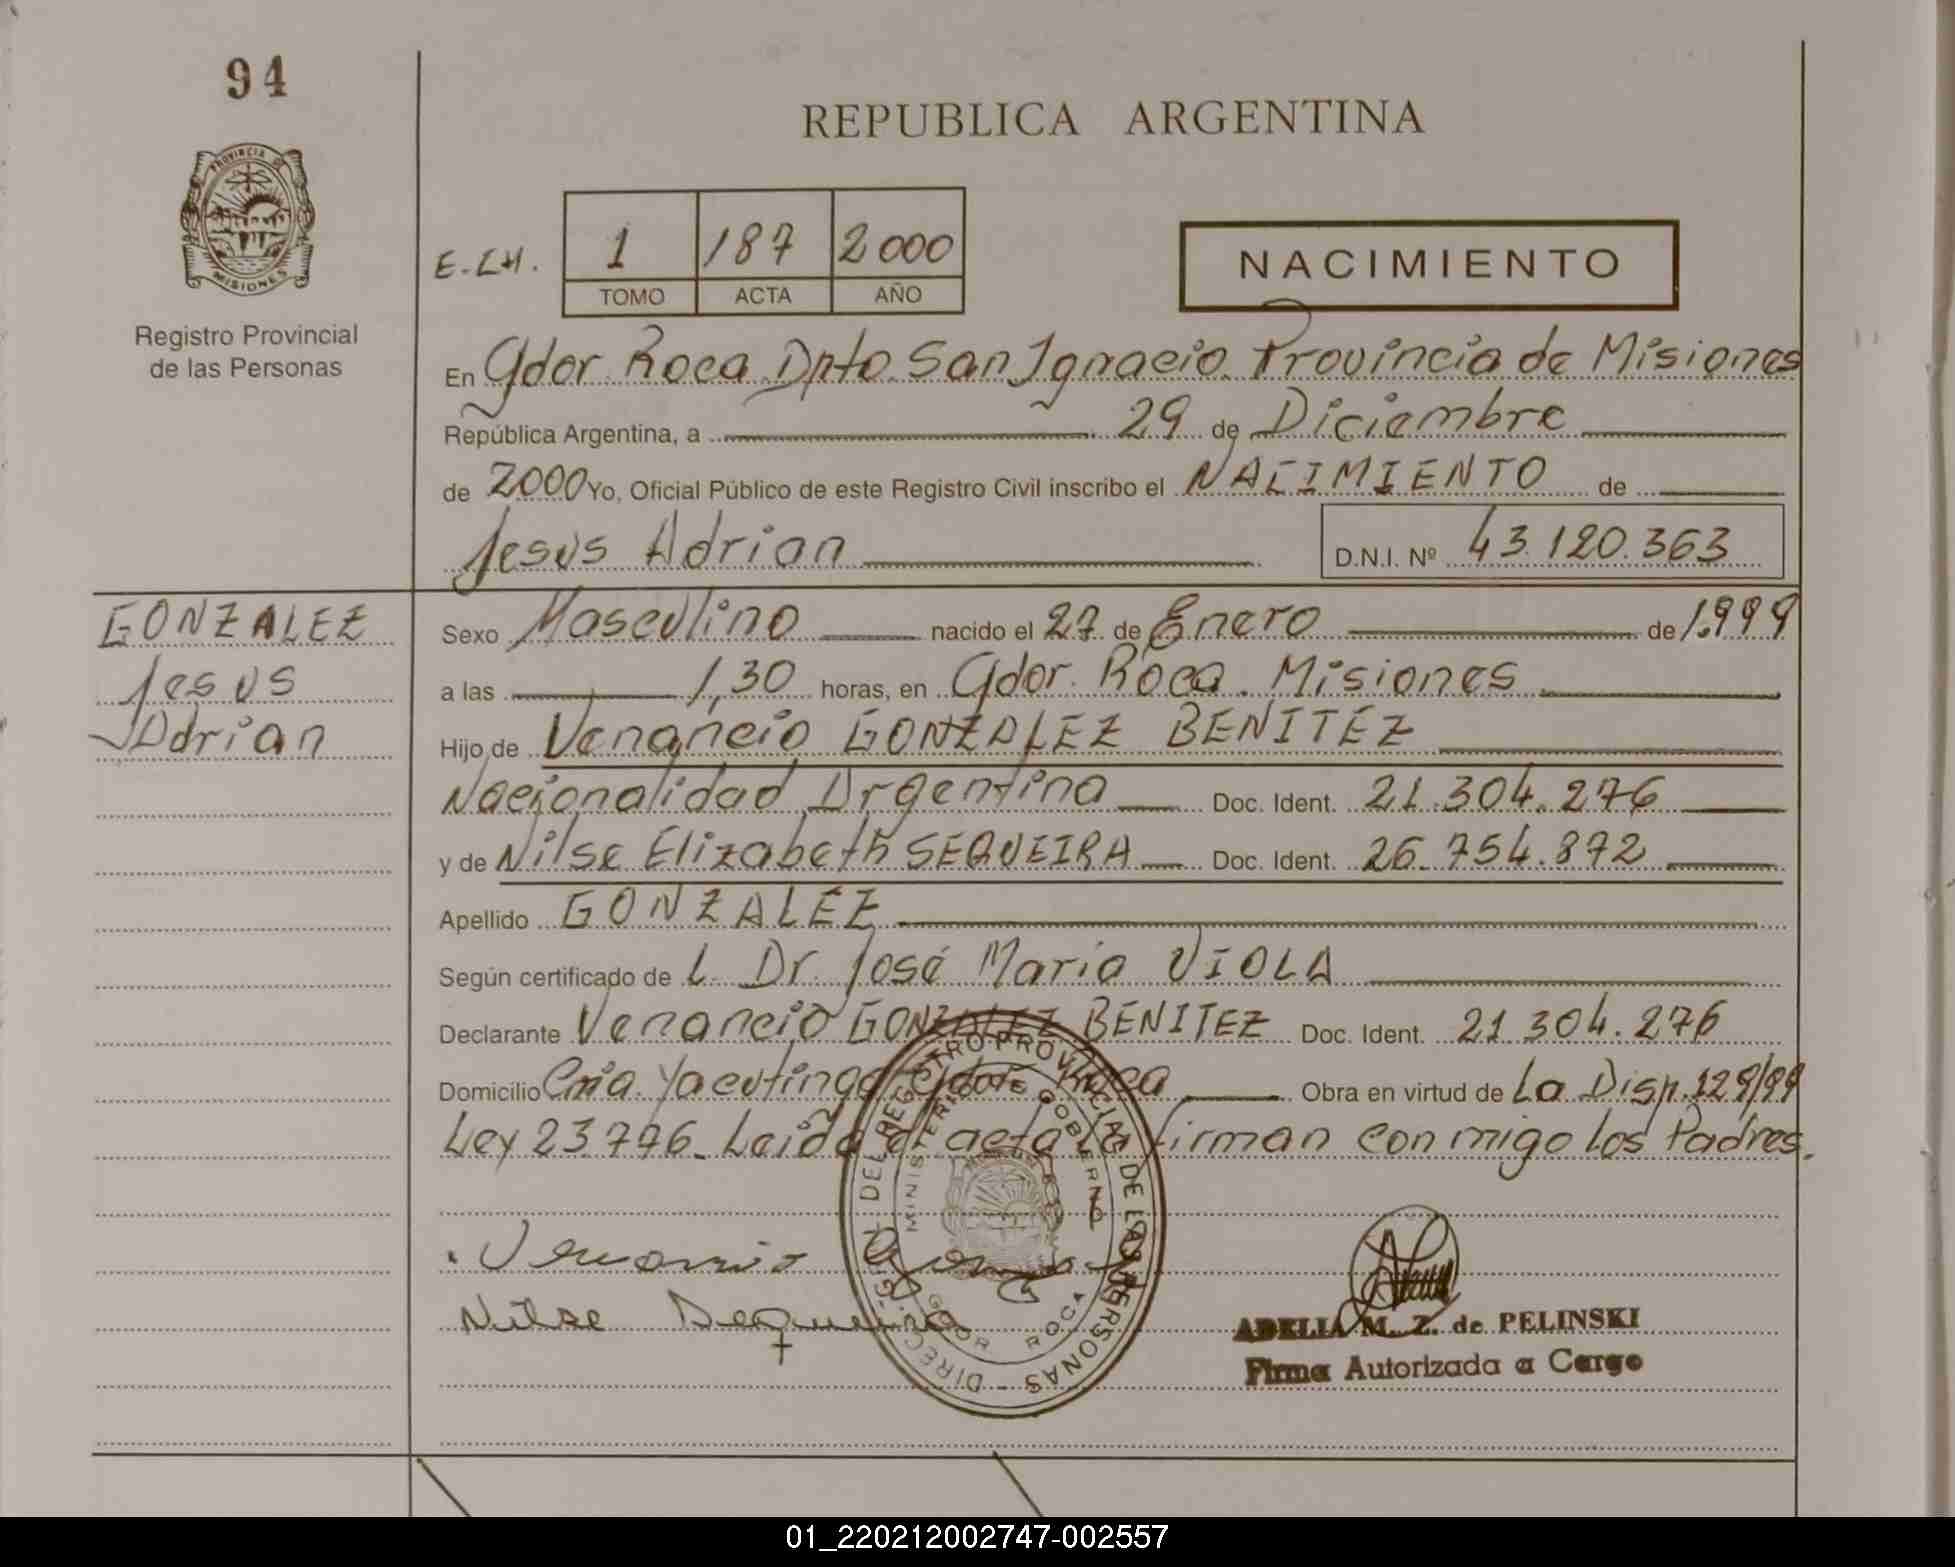 94
REPUBLICA ARGENTINA
PROVINCIA DE
MISIONES
Registro Provincial
de las Personas
E.CH. 1 187 2000
TOMO ACTA AÑO
NACIMIENTO
En Gdor. Roca Dpto. San Ignacio. Provincia de Misiones
República Argentina, a 29 de Diciembre
de 2000 Yo, Oficial Público de este Registro Civil inscribo el NACIMIENTO de
Jesus Adrian D.N.I. Nº 43.120.363
GONZALEZ
Jesus
Adrian
Sexo Masculino nacido el 27 de Enero de 1.999
a las 1,30 horas, en Gdor. Roca. Misiones
Hijo de Venancio GONZALEZ BENITEZ
Nacionalidad Argentina Doc. Ident. 21.304.276
y de Nilse Elizabeth SEQUEIRA Doc. Ident. 26.754.872
Apellido GONZALEZ
Según certificado de L. Dr. José Maria VIOLA
Declarante Venancio GONZALEZ BENITEZ Doc. Ident. 21.304.276
Domicilio Cnia. Yacutinga Gdor. Roca Obra en virtud de La Disp. 129/99
Ley 23.776. Leida el acta la firman conmigo los Padres.
Venancio
Nilse Sequeira
DIRECC. GRAL. DEL REGISTRO PROVINCIAL DE LAS PERSONAS
MINISTERIO DE GOBIERNO
GDOR ROCA
ADELIA M. Z. de PELINSKI
Firma Autorizada a Cargo
01_220212002747-002557